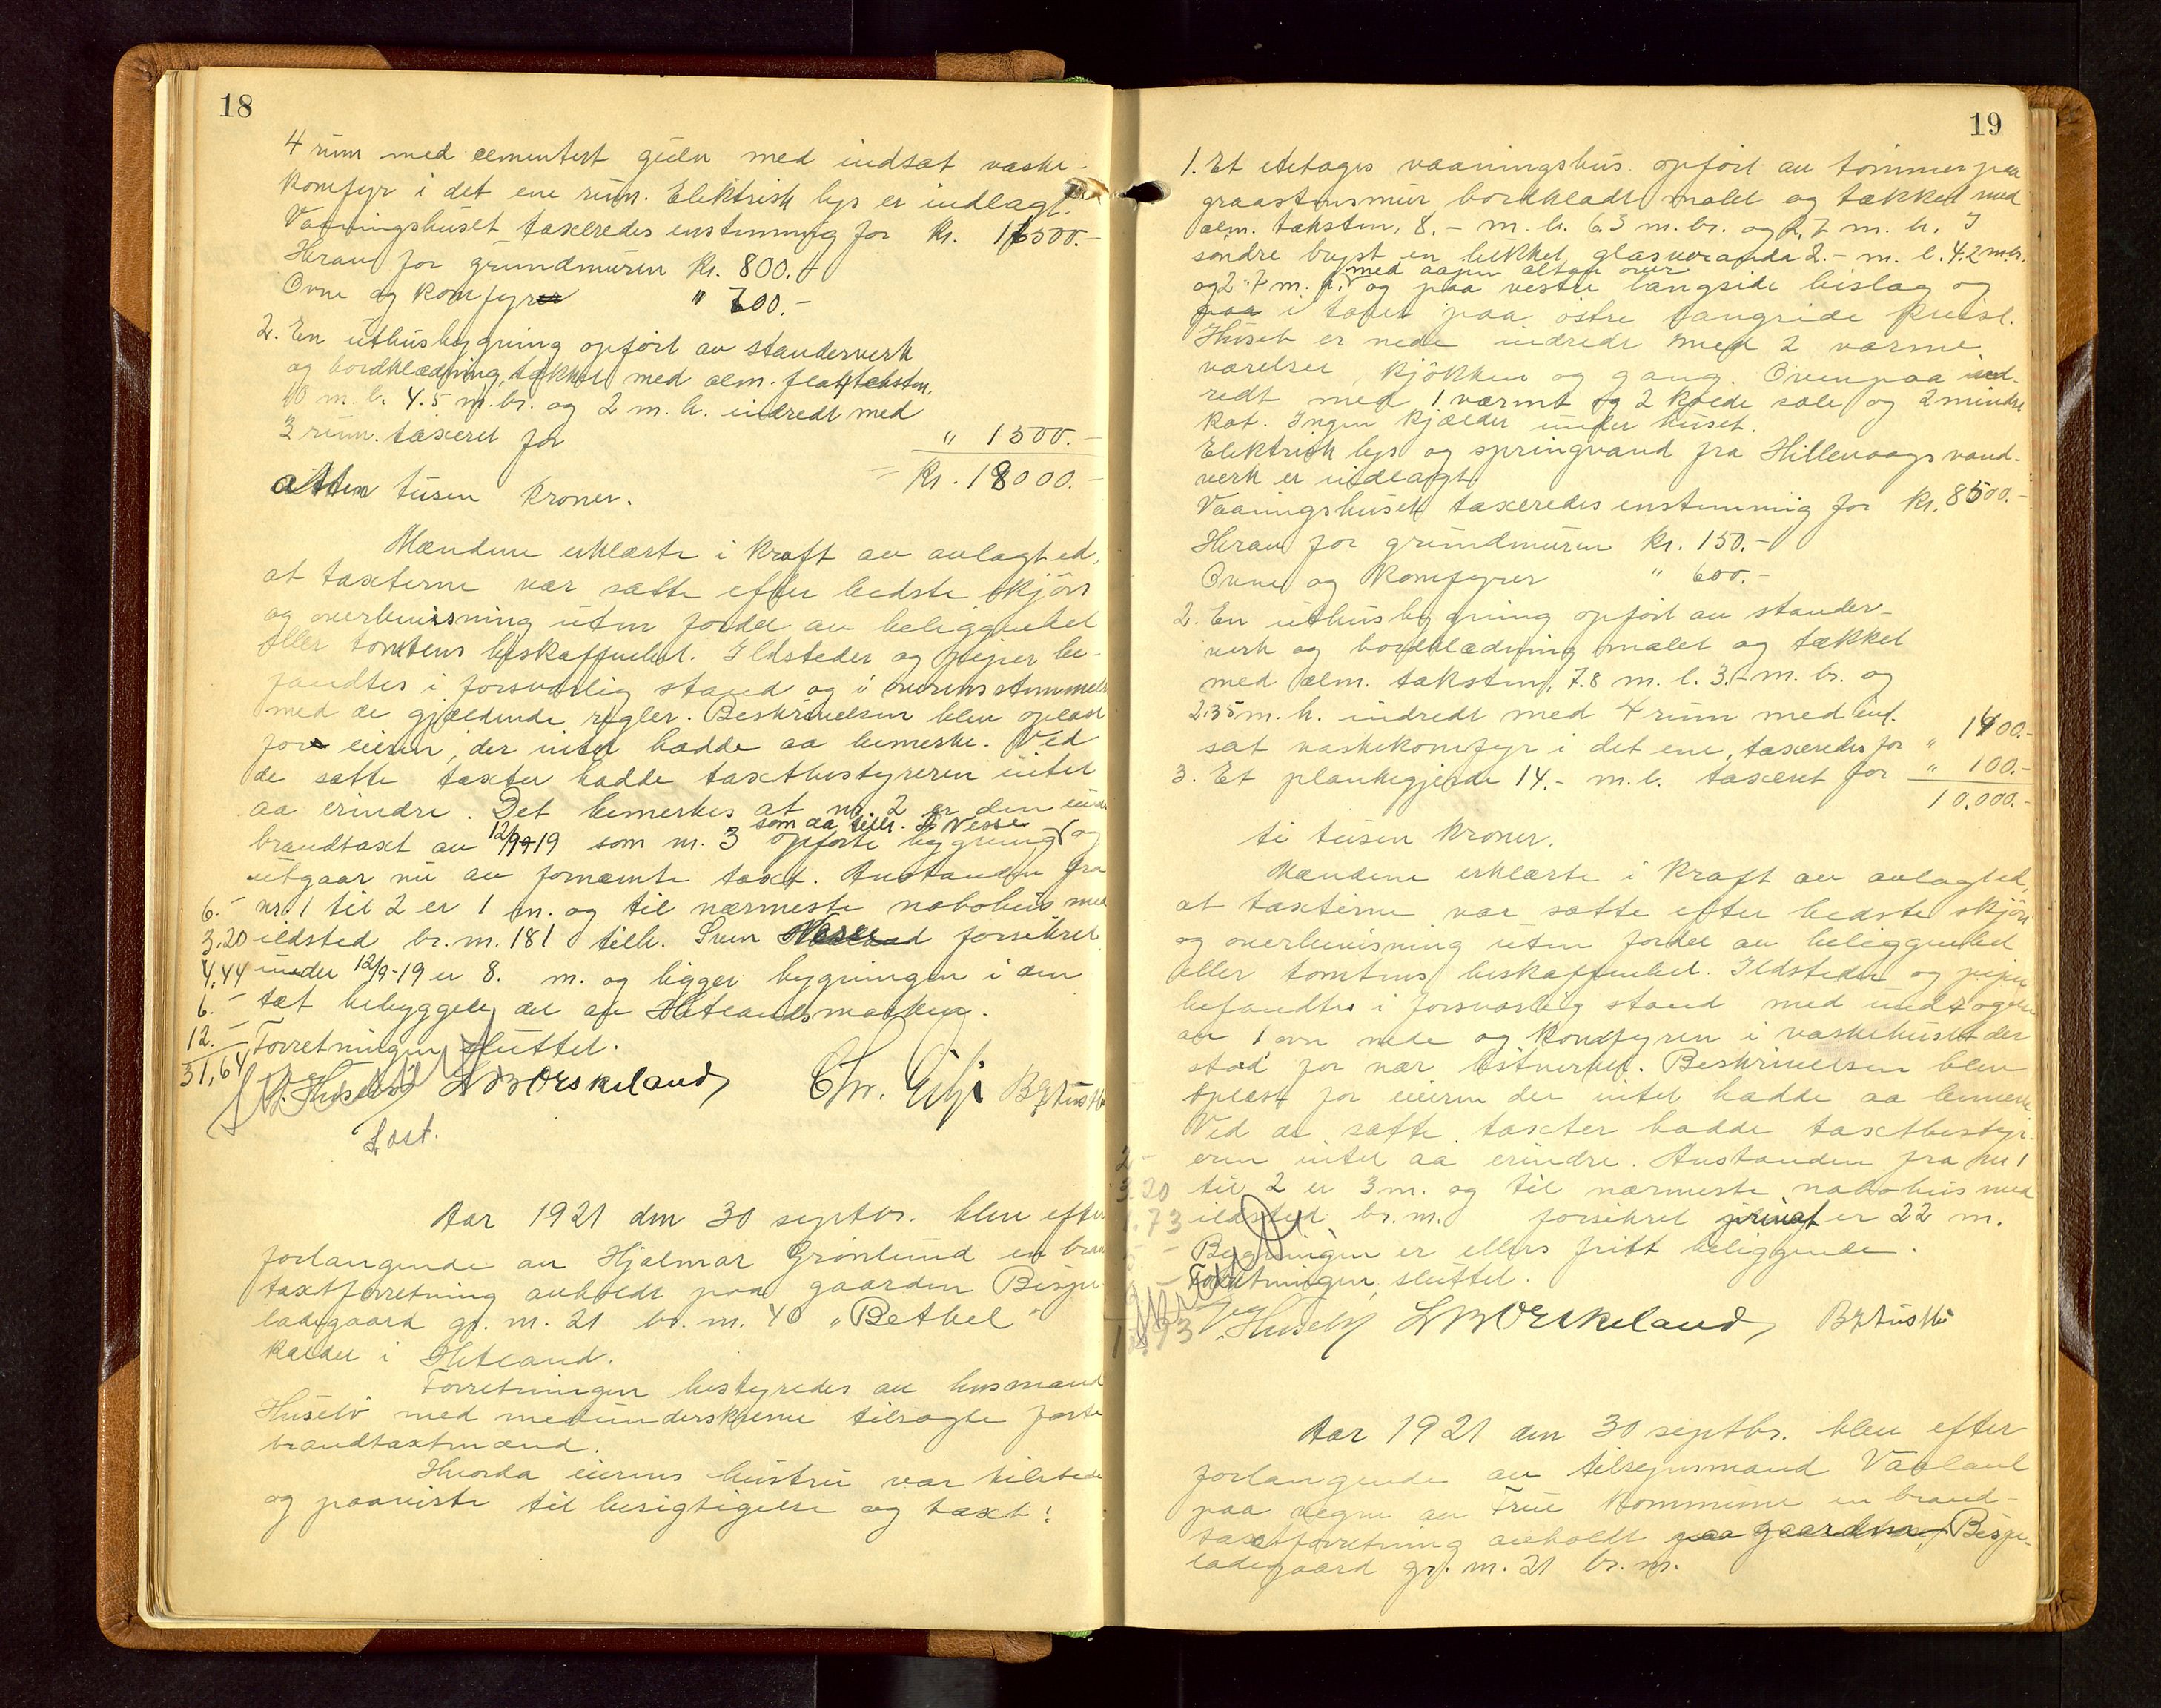 18
4 rum med cementert gulv med indsat vaske-
komfyr i det ene rum. Elektrisk lys er indlagt.
Vaaningshuset taxeredes enstemmig for Kr. 16500.-
Herav for grundmuren Kr. 800.-
Ovne og komfyr " 700.-
2. En uthusbygning opført av standerverk
og bordklædning, tækket med alm. flat taksten,
10 m. l. 4.5 m. br. og 2 m. h. indredt med
3 rum. taxeret for " 1500.-
Kr. 18000.-
atten tusen kroner.
Mændene erklærte i kraft av avlagt ed,
at taxterne var satte efter bedste skjøn
og overbevisning uten fordel av beliggenhet
eller tomtens beskaffenhet. Ildsteder og piper be-
fandtes i forsvarlig stand og i overensstemmelse
med de gjældende regler. Beskrivelsen blev oplæst
for eieren, der intet hadde aa bemerke. Ved
de satte taxter hadde taxtbestyreren intet
aa erindre. Det bemerkes at nr. 2 er den under
brandtaxt av 12/9-19 som nr. 3 opførte bygning og
som aa tilh. S. Nesse
utgaar nu av fornævnte taxt. Avstanden fra
6.- nr. 1 til 2 er 1 m. og til nærmeste nabohus med
3.20 ildsted br. nr. 181 tilh. Sven Nesse forsikret
4.44 under 12/9-19 er 8. m. og ligger bygningen i den
6.- tæt bebyggede del av Hetlandsmarken.
12.- Forretningen sluttet.
31,64
J. Huselø L M Ørskeland Chr. Gilje B Ptustb
Last.
Aar 1921 den 30 septbr. blev efter
forlangende av Hjalmar Grønlund en brand
taxtforretning avholdt paa gaarden Bispe
ladegaard gr. nr. 21 br. nr. 40 "Bethel"
kaldet i Hetland.
Forretningen bestyredes av lensmand
Huselø med medunderskrevne tilsagte faste
brandtaxtmænd.
Hvorda eierens hustru var tilstede
og paaviste til besigtigelse og taxt:
19
1. Et etetages vaaningshus opført av tømmer paa
graastensmur bordklædt malet og tækket med
alm. taksten, 8.- m. l. 6.3 m. br. og 2.7 m. h. I
søndre bryst en lukket glasveranda 2.- m. l. 4.2 m. br.
med aapen altan over
og 2.7 m. h. og paa vestre langside bislag og
paa i taket paa østre langside kvist.
Huset er nede indredt med 2 varme
værelser, kjøkken og gang. Ovenpaa ind-
redt med 1 varmt og 2 kolde sale og 2 mindre
kot. Ingen kjælder under huset.
Elektrisk lys og springvand fra Hillevaags vand-
verk er indlagt.
Vaaningshuset taxeredes enstemmig for Kr. 8500.-
Herav for grundmuren Kr. 150.-
Ovne og komfyrer " 600.-
2. En uthusbygning opført av stander-
verk og bordklædning malet og tækket
med alm. taksten, 7.8 m. l. 3.- m. br. og
2.35 m. h. indredt med 4 rum med ind-
sat vaskekomfyr i det ene, taxeredes for " 1400.-
3. Et plankegjerde 14.- m. l. taxeret for " 100.-
10.000.-
ti tusen kroner.
Mændene erklærte i kraft av avlagt ed,
at taxterne var satte efter bedste skjøn
og overbevisning uten fordel av beliggenhet
eller tomtens beskaffenhet. Ildsteder og piper
befandtes i forsvarlig stand med undtagelse
av 1 ovn nede og komfyren i vaskehuset der
stod for nær østverket. Beskrivelsen blev
oplæst for eieren der intet hadde aa bemerke
Ved de satte taxter hadde taxtbestyr-
2.- eren intet aa erindre. Avstanden fra nr 1
3.20 til 2 er 3 m. og til nærmeste nabohus med
1.73 ildsted br. nr. forsikret privat er 22 m.
5.- Bygningen er ellers fritt beliggende.
Forretningen sluttet.
J. Huselø L M Ørskeland B Ptustb
Aar 1921 den 30 septbr. blev efter
forlangende av tilsynsmand Vaaland
paa vegne av Frue kommune en brand-
taxtforretning avholdt paa gaarden Bispe-
ladegaard gr. nr. 21 br. nr.